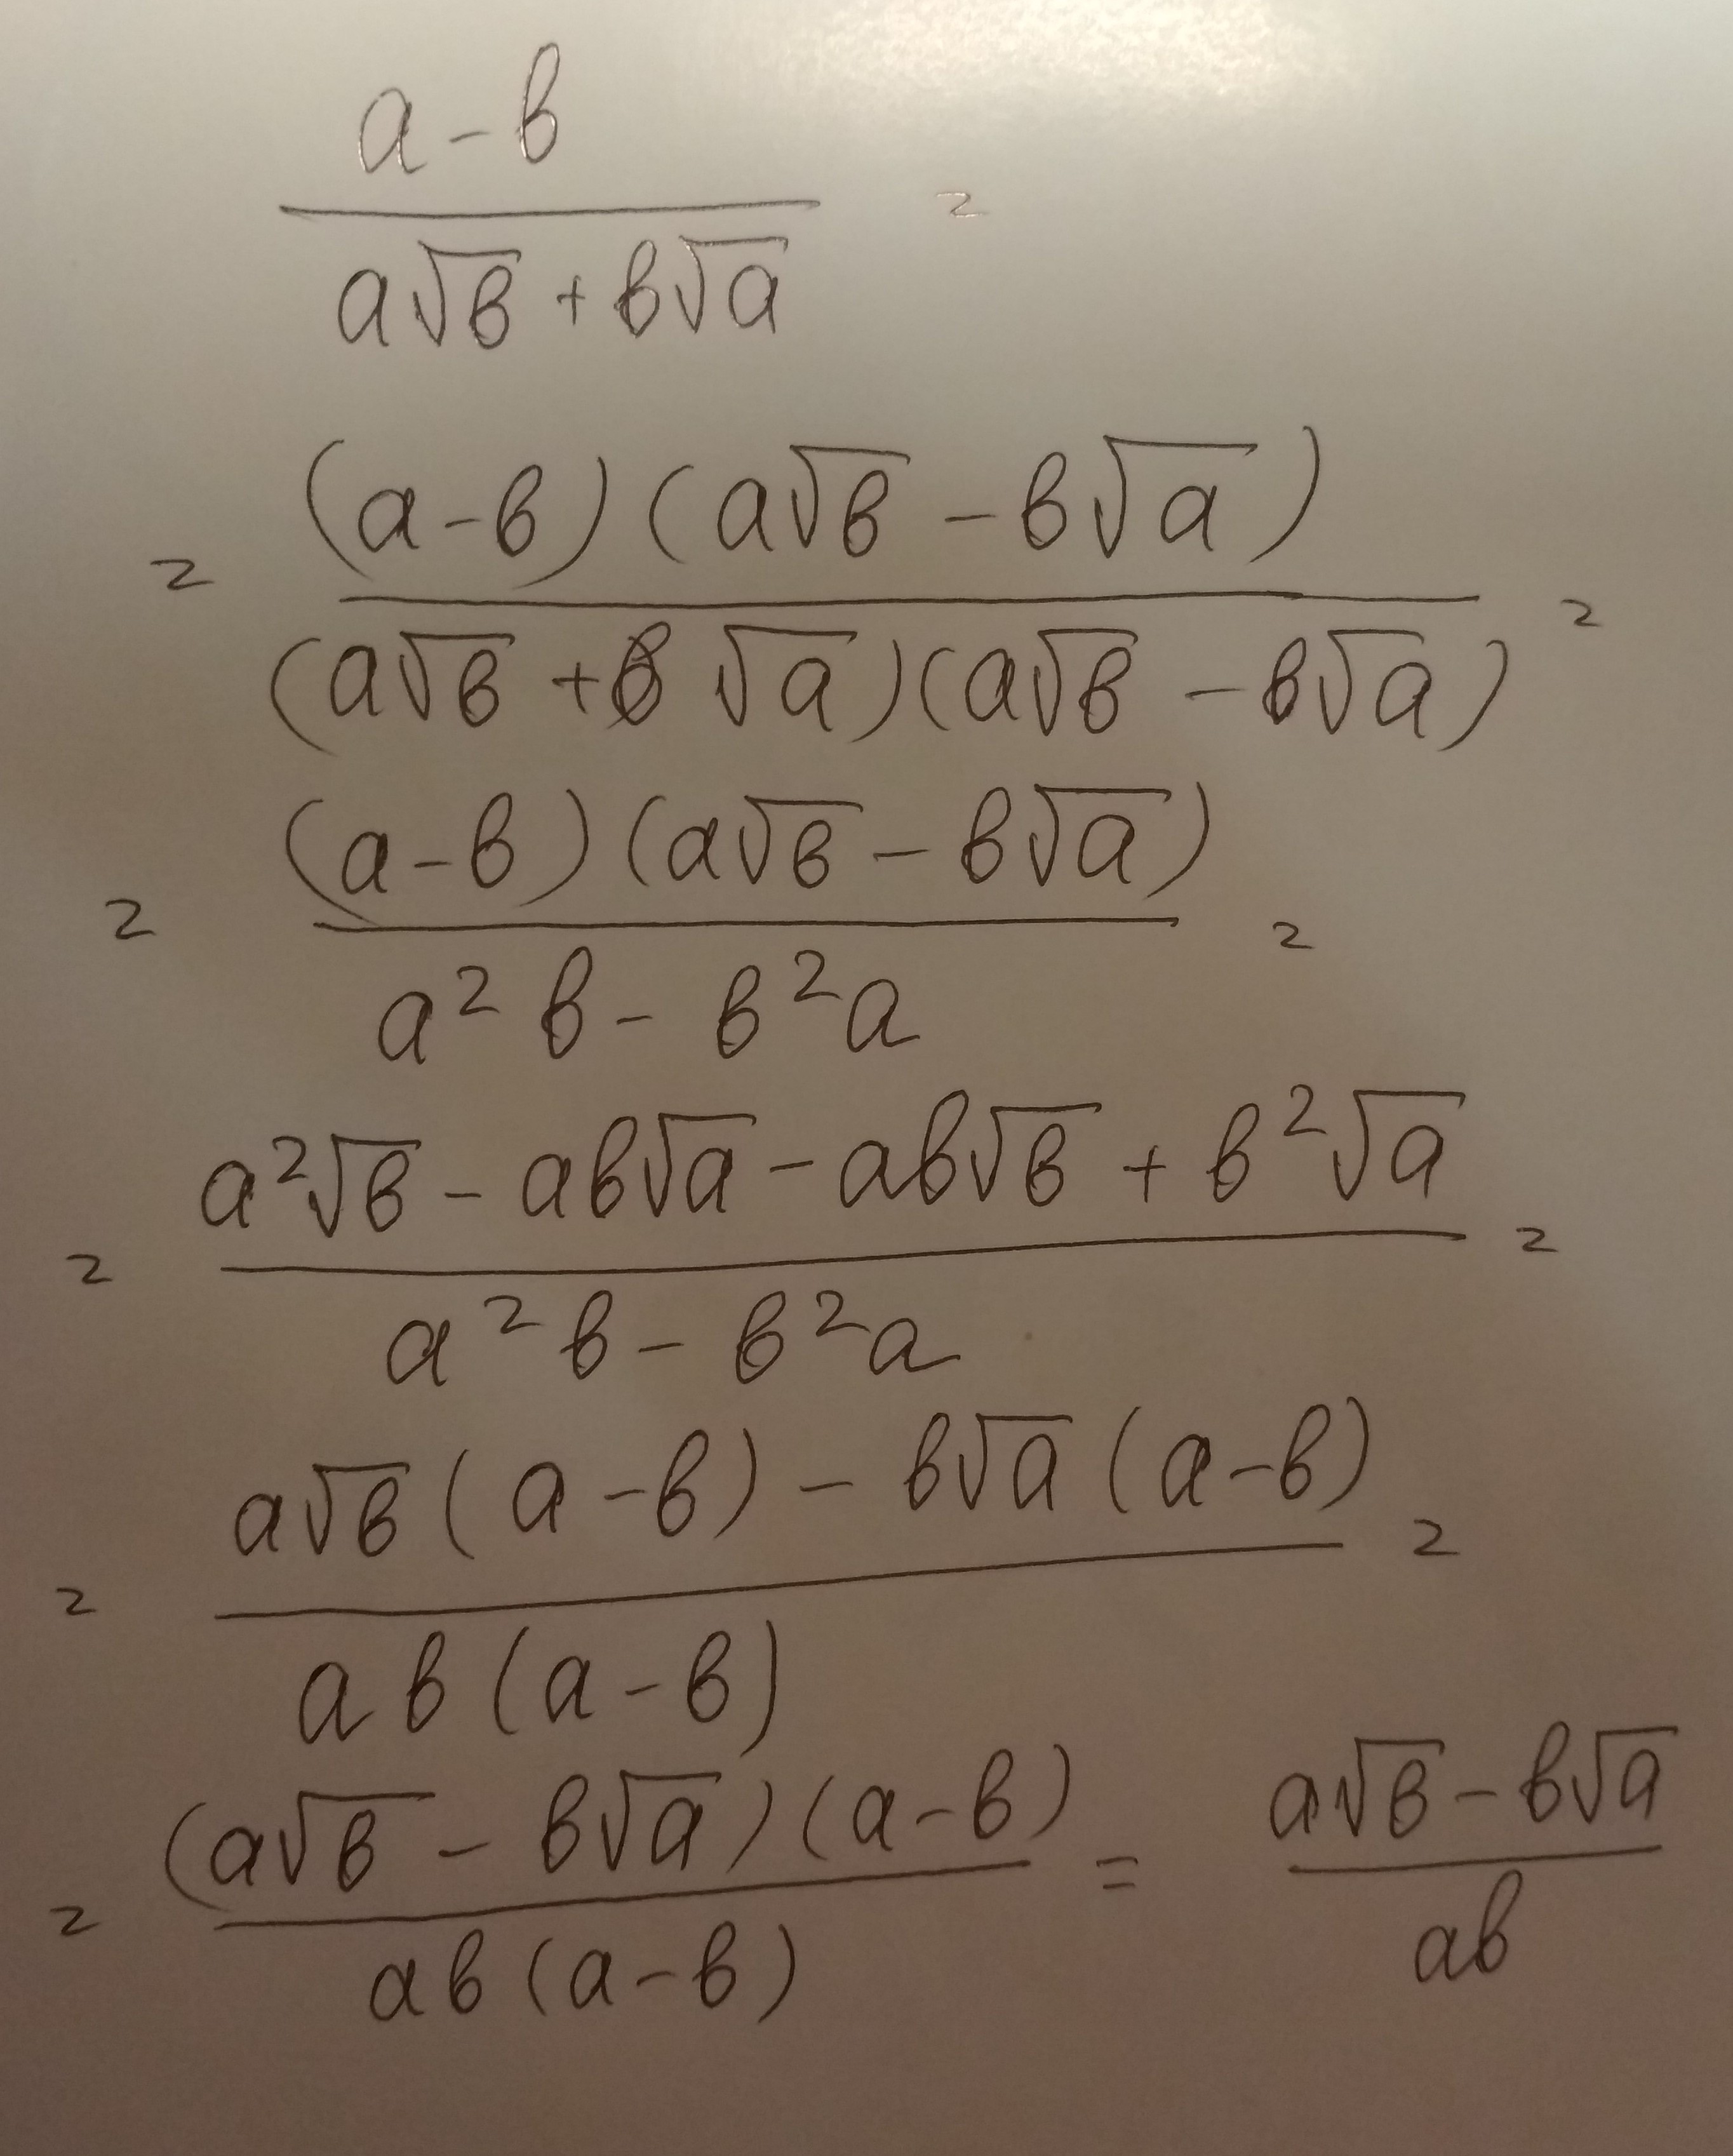 a - b
a√b + b√a =
= (a - b)(a√b - b√a)
(a√b + b√a)(a√b - b√a) =
= (a - b)(a√b - b√a)
a²b - b²a =
= a²√b - ab√a - ab√b + b²√a
a²b - b²a =
= a√b(a - b) - b√a(a - b)
ab(a - b) =
= (a√b - b√a)(a - b) = a√b - b√a
ab(a - b) ab